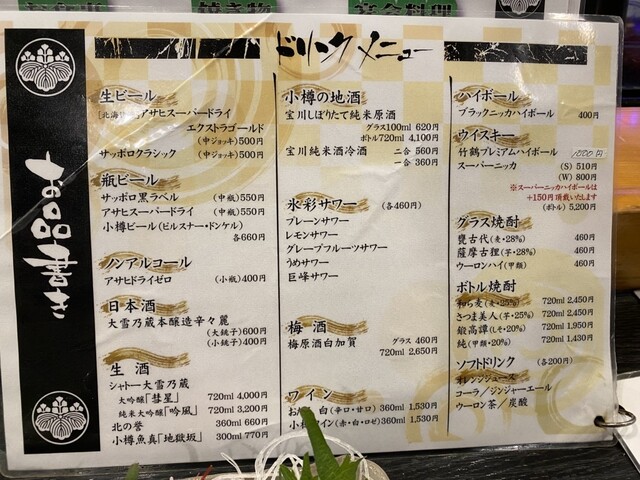 お品書き
ドリンクメニュー
生ビール
アサヒスーパードライ
エクストラゴールド
(中ジョッキ)500円
サッポロクラシック (中ジョッキ)500円
瓶ビール
サッポロ黒ラベル (中瓶)550円
アサヒスーパードライ (中瓶)550円
小樽ビール(ピルスナー・ドンケル)
各660円
ノンアルコール
アサヒドライゼロ (小瓶)400円
日本酒
大雪乃蔵本醸造辛々麗
(大銚子)600円
(小銚子)400円
生酒
シャトー大雪乃蔵
大吟醸「彗星」 720ml 4,000円
純米大吟醸「吟風」 720ml 3,200円
北の誉 360ml 660円
小樽魚真「地獄坂」 300ml 770円
小樽の地酒
宝川しぼりたて純米原酒
グラス100ml 620円
ボトル720ml 4,100円
宝川純米酒冷酒 二合 560円
一合 360円
氷彩サワー (各460円)
プレーンサワー
レモンサワー
グレープフルーツサワー
うめサワー
巨峰サワー
梅酒
梅原酒白加賀 グラス 460円
720ml 2,650円
ワイン
白(辛口・甘口) 360ml 1,530円
ワイン(赤・白・ロゼ) 360ml 1,530円
ハイボール
ブラックニッカハイボール 400円
ウイスキー
竹鶴プレミアムハイボール 1000円
スーパーニッカ (S) 510円
(W) 800円
※スーパーニッカハイボールは
+150円頂戴いたします
(ボトル) 5,200円
グラス焼酎
甕古代(麦・28%) 460円
薩摩古狸(芋・28%) 460円
ウーロンハイ(甲類) 460円
ボトル焼酎
和ら麦(麦・25%) 720ml 2,450円
さつま美人(芋・25%) 720ml 2,450円
鍛高譚(しそ・20%) 720ml 1,950円
純(甲類・20%) 720ml 1,430円
ソフトドリンク (各200円)
オレンジジュース
コーラ/ジンジャーエール
ウーロン茶/炭酸